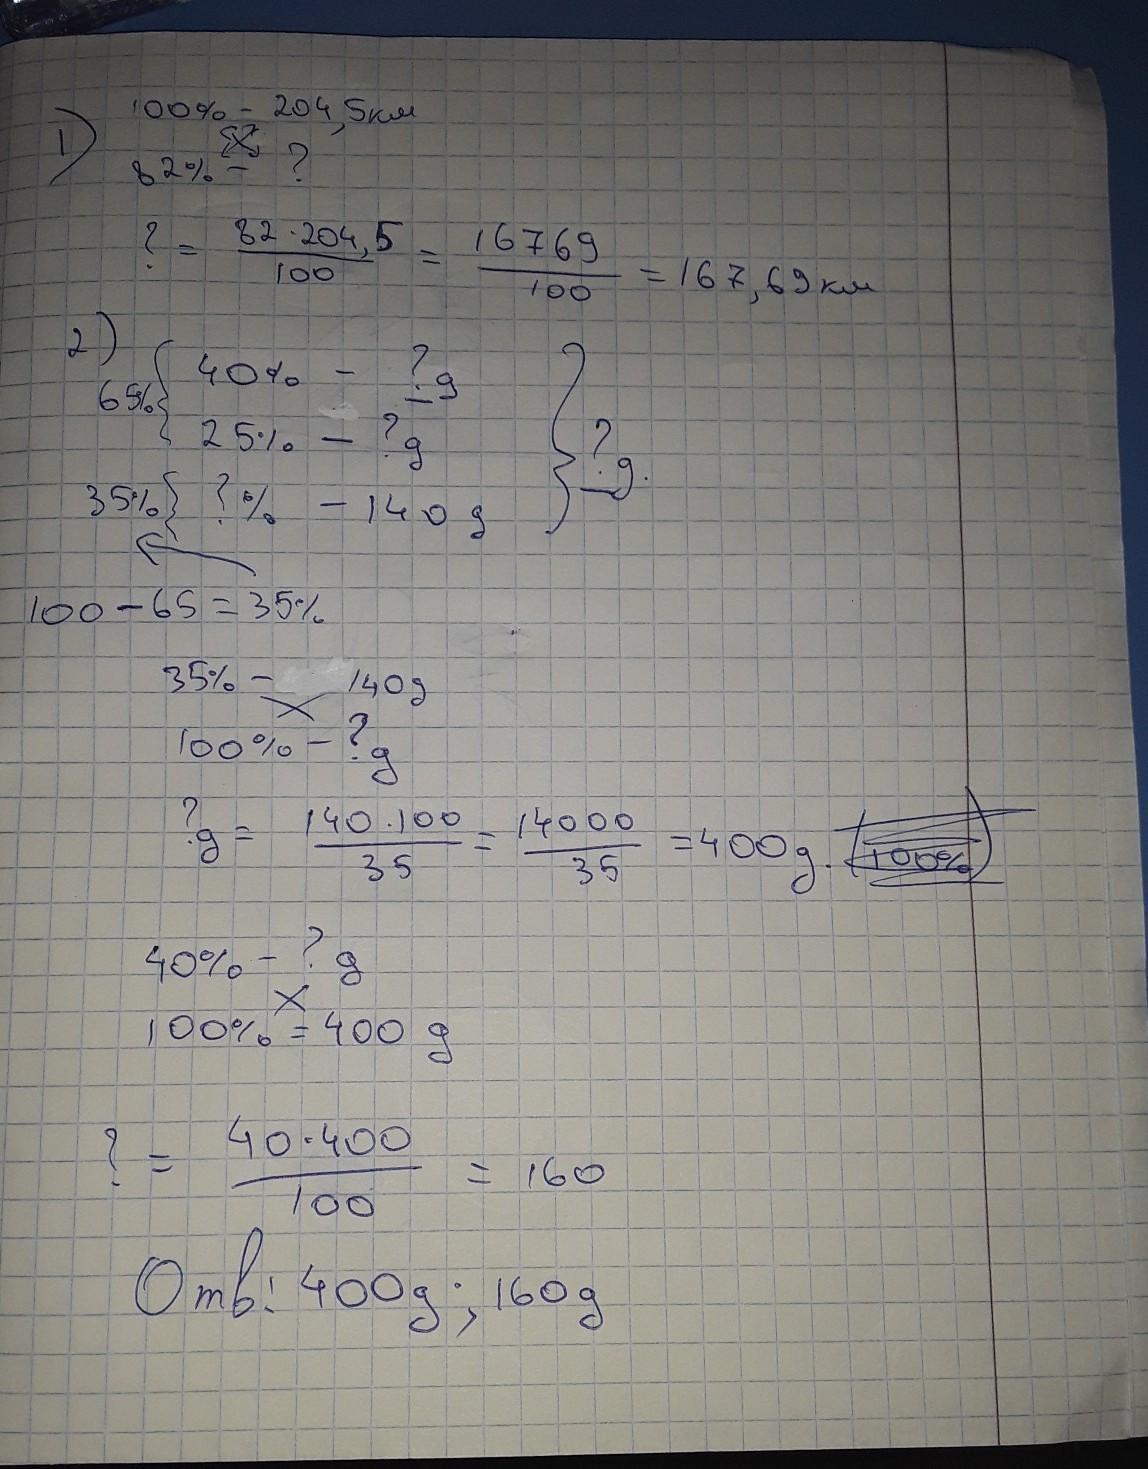 1) 100% - 204,5км
82% - ?
? = 82·204,5 / 100 = 16769 / 100 = 167,69км
2)
65% { 40% - ? g
25% - ? g } ? g.
35% { ? % - 140 g
100 - 65 = 35%
35% - 140g
100% - ? g
? g = 140·100 / 35 = 14000 / 35 = 400g. 100%
40% - ? g
100% = 400 g
? = 40·400 / 100 = 160
Отв: 400g; 160g